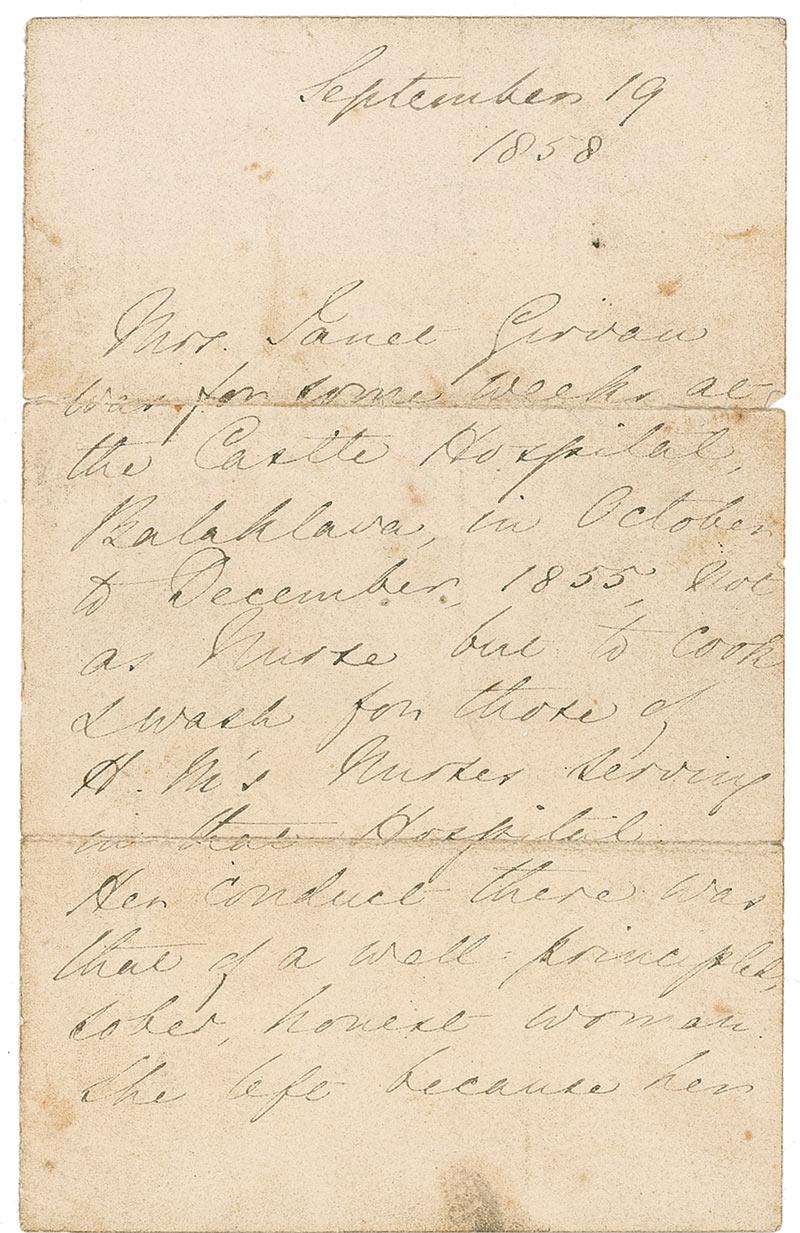 September 19
1858
Mrs. Janet Girvan
was for some weeks at
the Castle Hospital,
Balaklava, in October
to December, 1855, not
as Nurse but to cook
& wash for those of
H. M's Nurses serving
in that Hospital.
Her conduct there was
that of a well-principled,
sober, honest woman.
She left because her